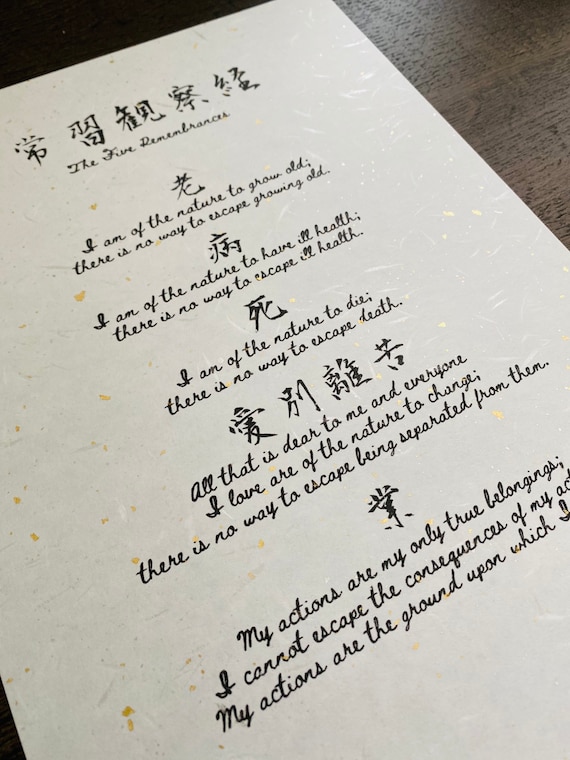 常習観察経
The Five Remembrances
老
I am of the nature to grow old;
there is no way to escape growing old.
病
I am of the nature to have ill health;
there is no way to escape ill health.
死
I am of the nature to die;
there is no way to escape death.
愛別離苦
All that is dear to me and everyone
I love are of the nature to change;
there is no way to escape being separated from them.
業
My actions are my only true belongings;
I cannot escape the consequences of my
My actions are the ground upon which I